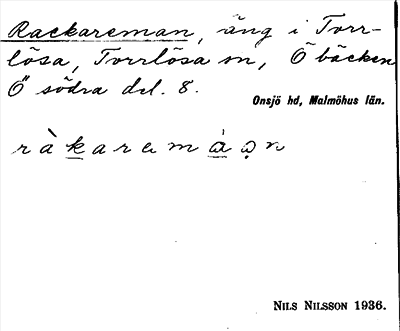 Rackareman, äng i Torr-
lösa, Torrlösa sn, Ö bäcken
Ö södra del. 8.
Onsjö hd, Malmöhus län.
ràkaremàǫn
NILS NILSSON 1936.